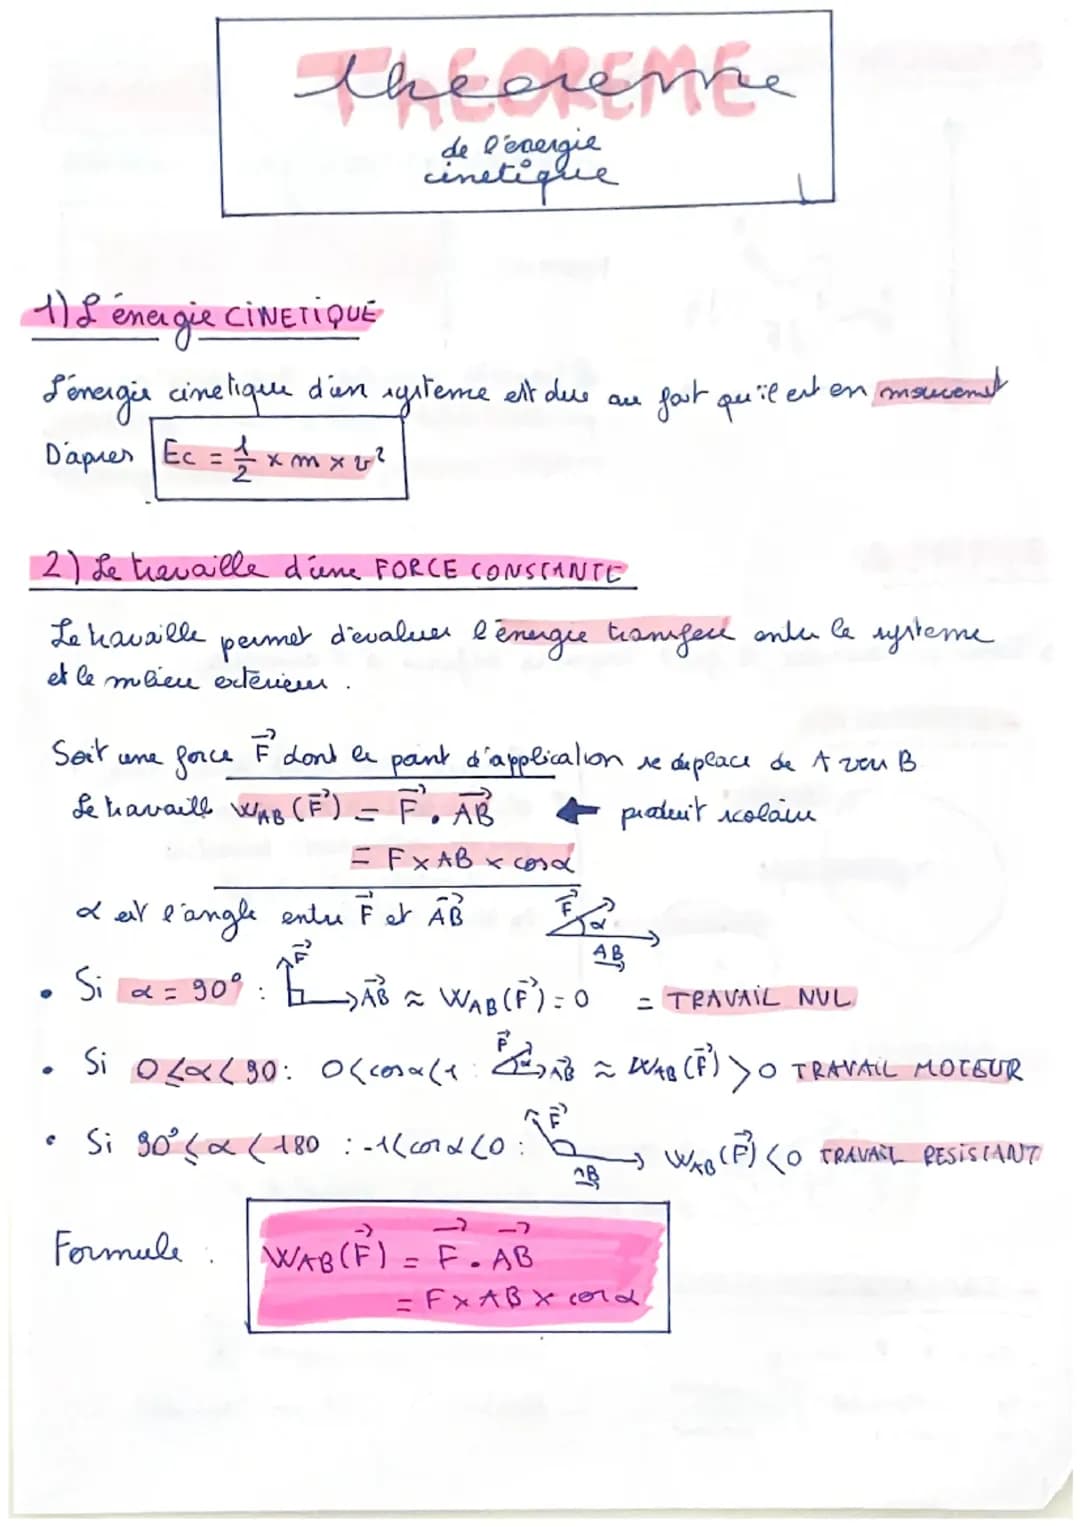 THEOREME
theoreme
de l'énergie
cinetique
1) L'énergie CINETIQUE
L'énergie cinetique d'un systeme est due au fait qu'il est en mouvement
D'apres Ec = 1/2 × m × v²
2) Le travaille d'une FORCE CONSTANTE
Le travaille permet d'evaluer l'énergie transferé entre le systeme
et le milieu extérieur.
Soit une force F⃗ dont le point d'application se deplace de A vers B
Le travaill W_AB (F⃗) = F⃗ . AB⃗ ← produit scolaire
= F × AB × cos α
α est l'angle entre F⃗ et AB⃗ F⃗ α AB⃗
• Si α = 90° : F⃗ AB⃗ ≈ W_AB (F⃗) = 0 = TRAVAIL NUL
• Si 0 ≤ α < 90 : 0 < cos α < 1 : F⃗ α AB⃗ ≈ W_AB (F⃗) > 0 TRAVAIL MOTEUR
• Si 90° ≤ α < 180 : -1 < cos α < 0 : F⃗ AB⃗ W_AB (F⃗) < 0 TRAVAIL RESISTANT
Formule : W_AB (F⃗) = F⃗ . AB⃗
= F × AB × cos α